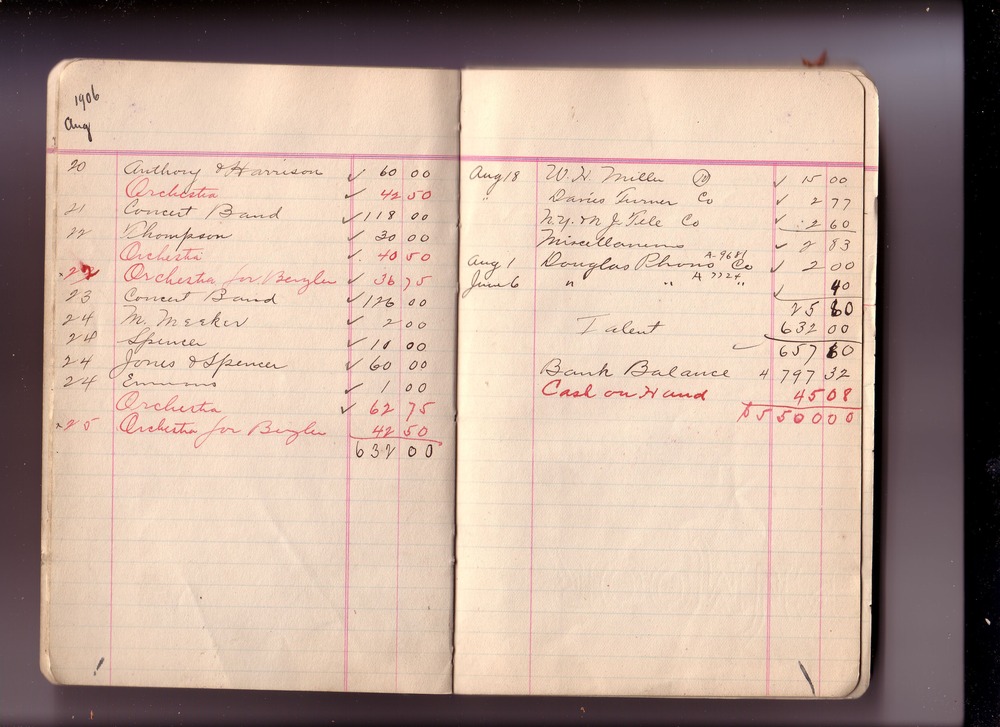 1906
Aug
20 Anthony & Harrison ✓ 60 00
Orchestra ✓ 42 50
21 Concert Band ✓ 118 00
22 Thompson ✓ 30 00
Orchestra ✓ 40 50
x22 Orchestra for Bergler ✓ 36 75
23 Concert Band ✓ 126 00
24 M. Meeker ✓ 2 00
24 Spencer ✓ 10 00
24 Jones & Spencer ✓ 60 00
24 Emmons ✓ 1 00
Orchestra ✓ 62 75
x25 Orchestra for Bergler 42 50
632 00
Aug 18 W. H. Miller ✓ 15 00
" Davies Turner Co ✓ 2 77
N.Y. & N.J. Tele Co ✓ 2 60
Miscellaneous ✓ 2 83
A-9681
Aug 1 Douglas Phono Co ✓ 2 00
A 7724
June 6 " " " ✓ 40
25 60
Talent 632 00
✓ 657 60
Bank Balance 4 797 32
Cash on Hand 45 08
$5 500 00